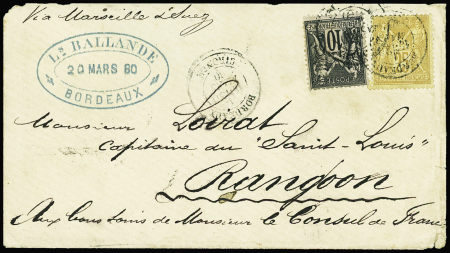 Via Marseille & Suez
Ls BALLANDE
20 MARS 80
BORDEAUX
POSTE
10
25
BORDEAUX
Monsieur Loirat
Capitaine du "Saint-Louis"
Rangoon
Aux bons soins de Monsieur le Consul de France